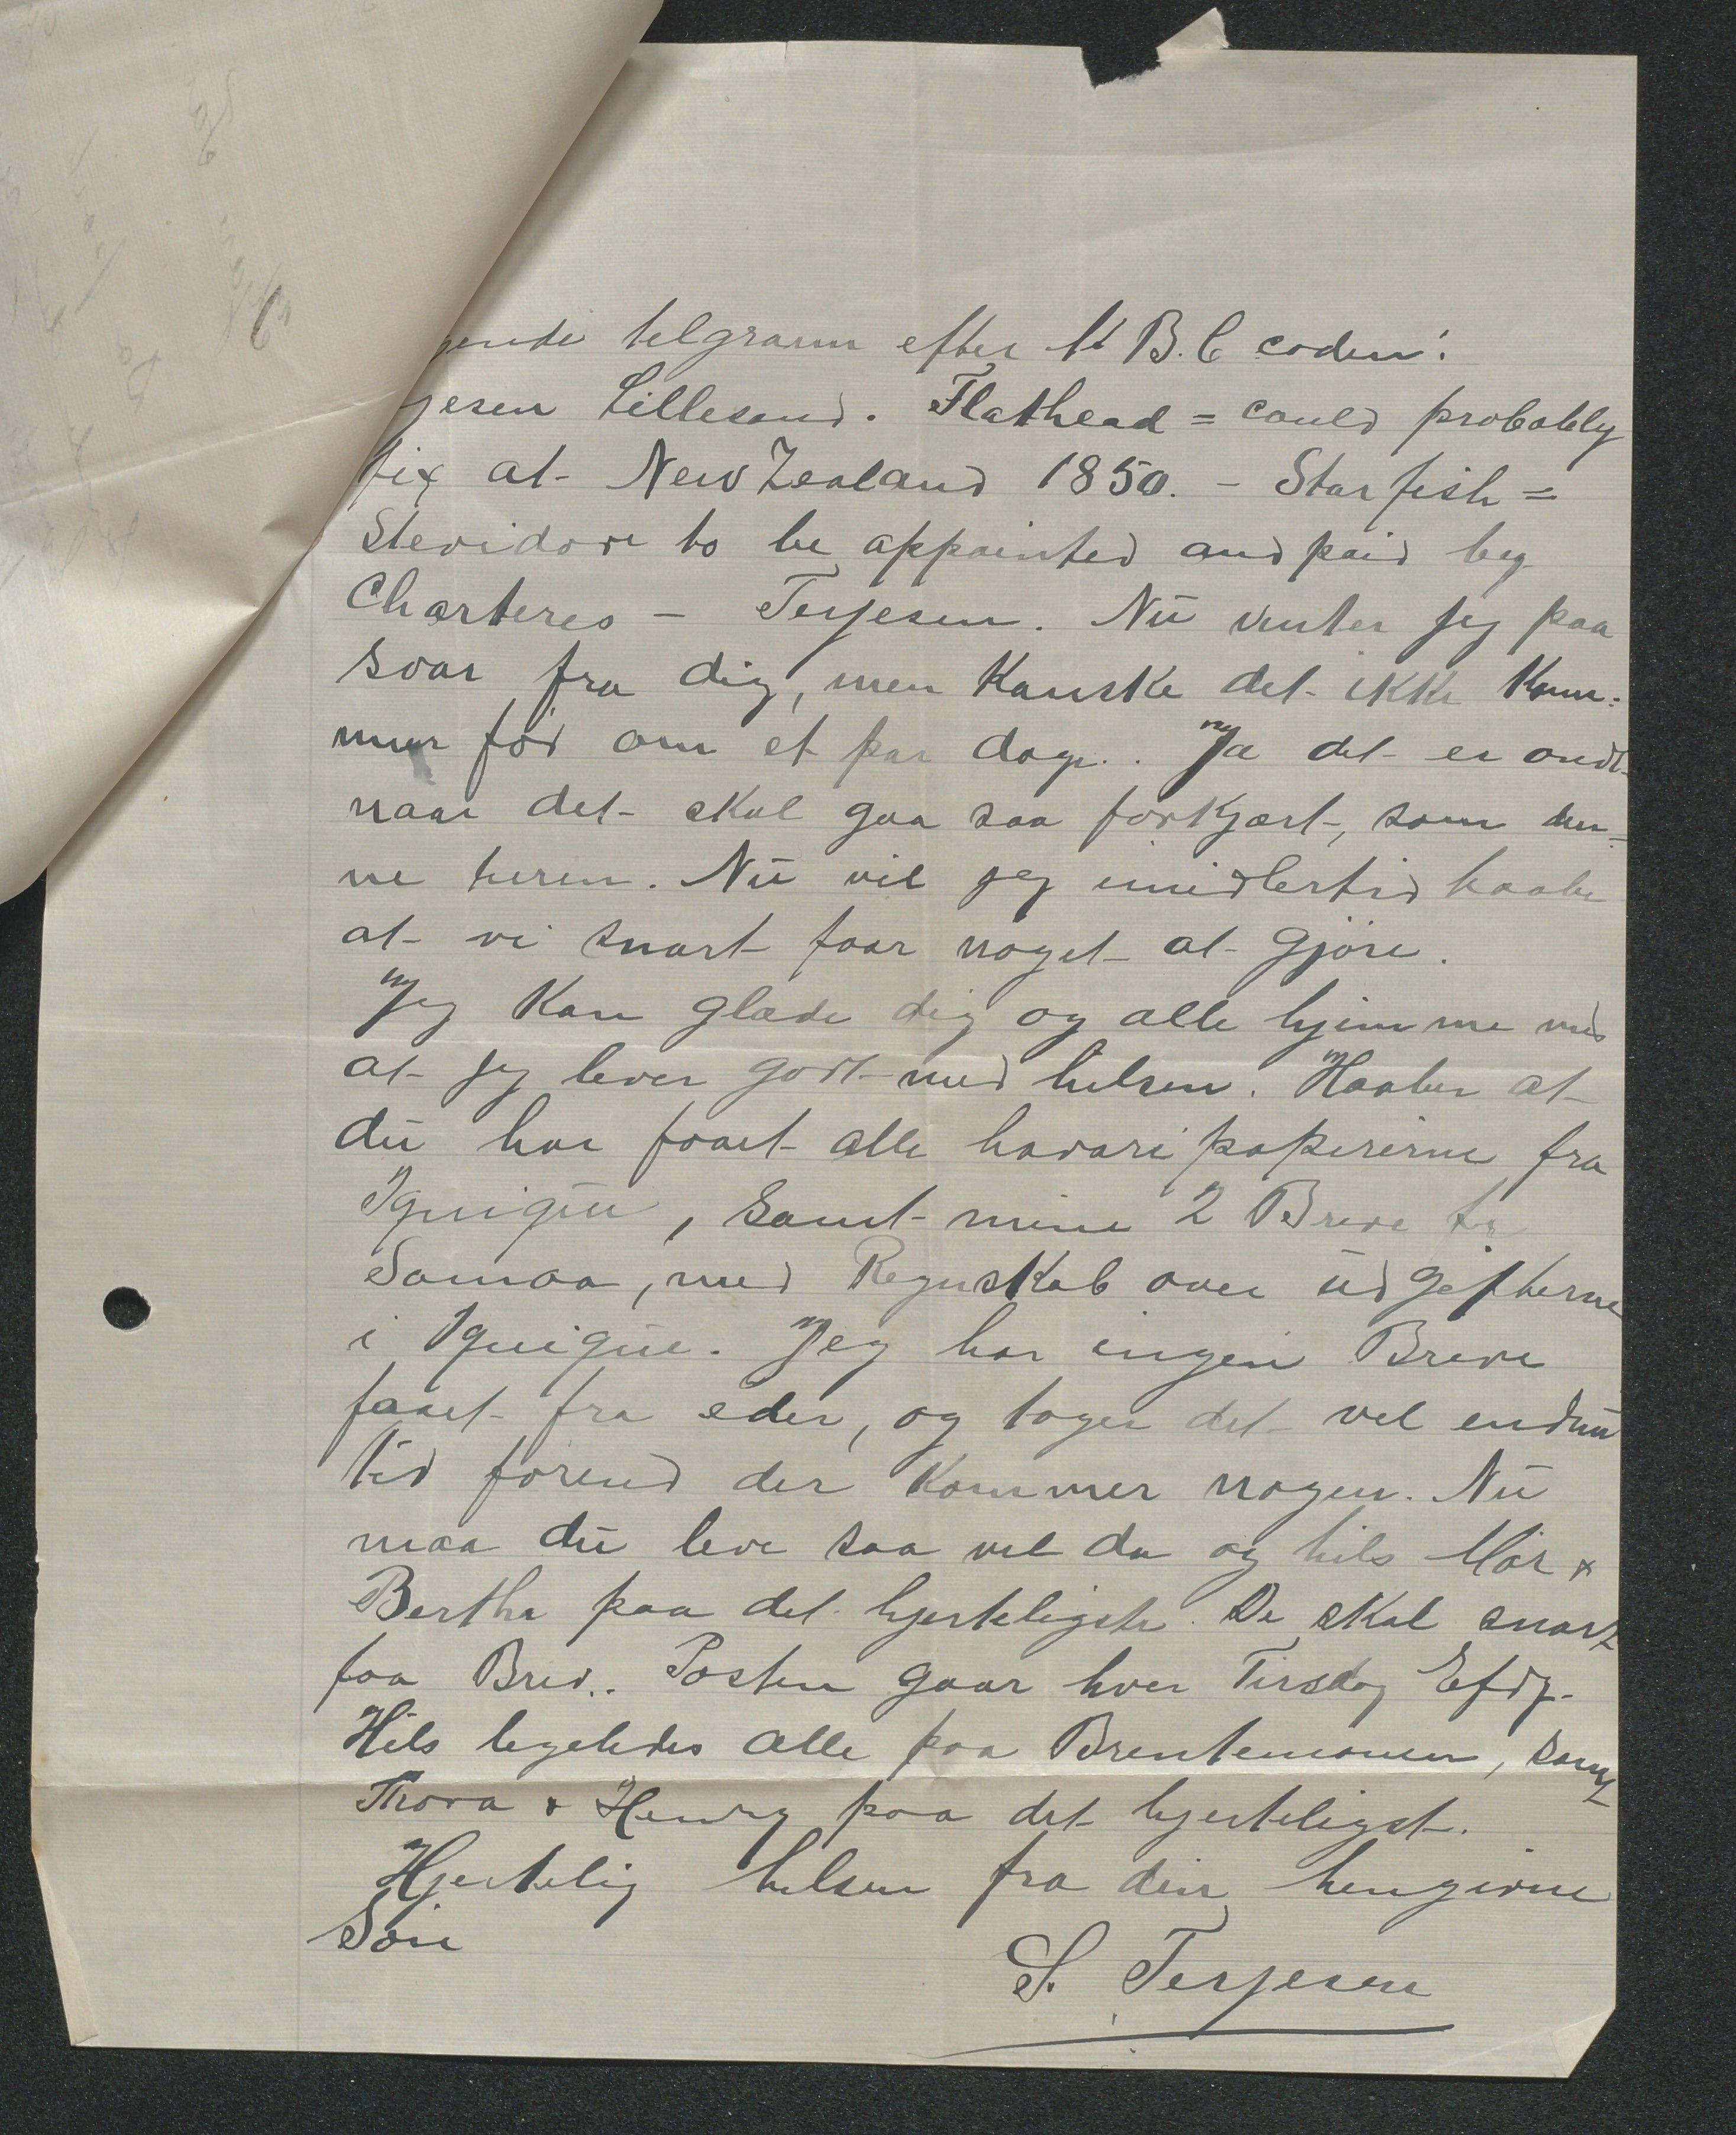 gende telgram efter A B.C coden:
jesen Lillesand. Flathead = could probably
fix at New Zealand 1850. - Starfish =
Stevidore to be appointed and paid by
Charteres - Terjesen. Nu venter jeg paa
svar fra dig, men kanske det ikke kom:
mer før om et par dage.. Ja det er ondt
naar det skal gaa saa forkjært, som den=
ne turen. Nu vil jeg imidlertid haabe
at vi snart faar noget at gjøre.
Jeg kan glæde dig og alle hjemme med
at jeg lever godt med helsen. Haaber at
du har faaet alle havaripapirerne fra
Iquique, samt mine 2 Breve fr
Samoa, med Regnskab over udgifterne
i Iquique. Jeg har ingen Breve
faaet fra eder, og tager det vel endnu
tid førend der kommer nogen. Nu
maa du leve saa vel da og hils Mor &
Bertha paa det hjerteligste. De skal snart
faa Brev.. Posten gaar hver Tirsdag Efdg.
Hils ligeledes alle paa Brentemoen, samt
Thora & Henry paa det hjerteligst.
Hjertelig hilsen fra din hengivne
Søn
S. Terjesen